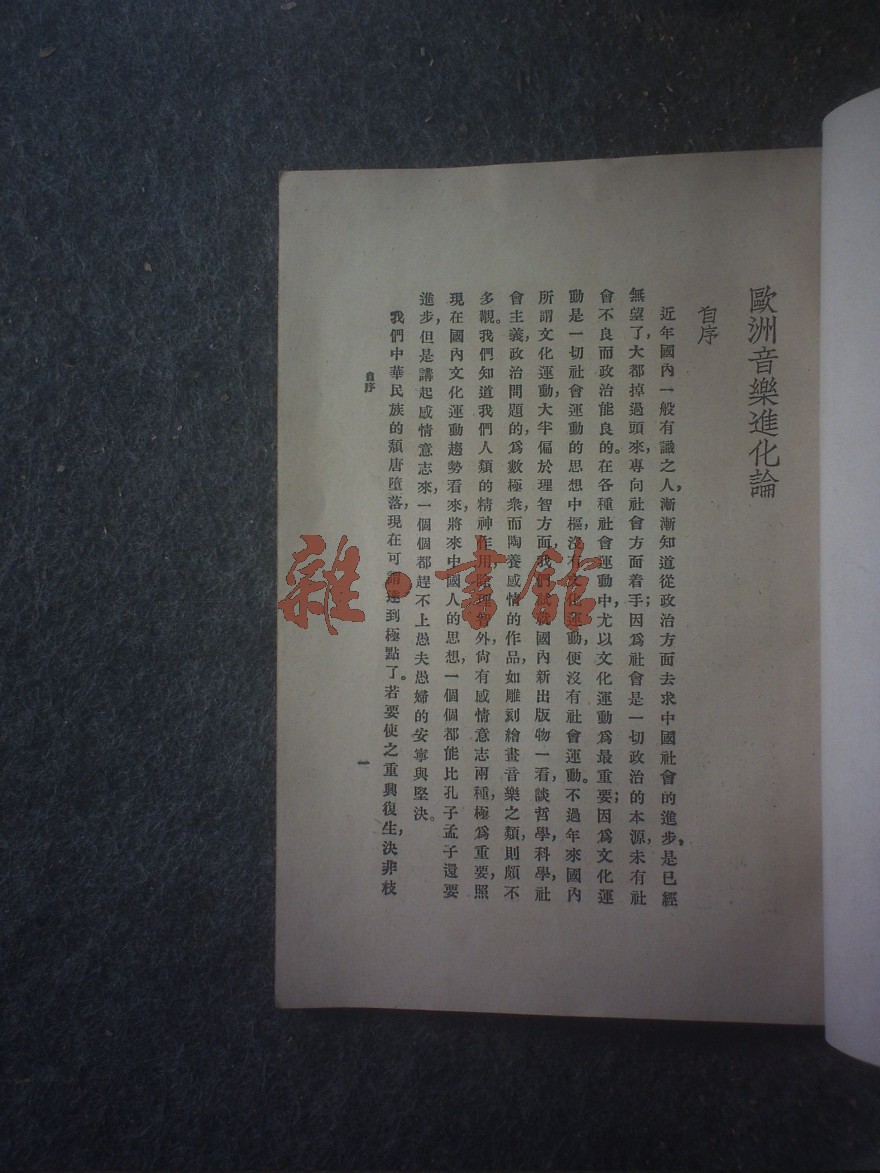 歐洲音樂進化論
自序
近年國內一般有識之人,漸漸知道從政治方面去求中國社會的進步,是已經
無望了,大都掉過頭來,專向社會方面着手;因爲社會是一切政治的本源,未有社
會不良而政治能良的。在各種社會運動中,尤以文化運動爲最重要;因爲文化運
動是一切社會運動的思想中樞,沒有文化運動,便沒有社會運動。不過年來國內
所謂文化運動,大半偏於理智方面,我們國內新出版物一看,談哲學,科學,社
會主義,政治問題的,爲數極衆,而陶養感情的作品,如雕刻繪畫音樂之類,則頗不
多觀。我們知道我們人類的精神作用,除理智外,尙有感情意志兩種,極爲重要,照
現在國內文化運動趨勢看來,將來中國人的思想,一個個都能比孔子孟子還要
進步,但是講起感情意志來,一個個都趕不上愚夫愚婦的安寧與堅決。
我們中華民族的頹唐墮落,現在可謂達到極點了。若要使之重興復生,決非枝
自序
一
雜·書館